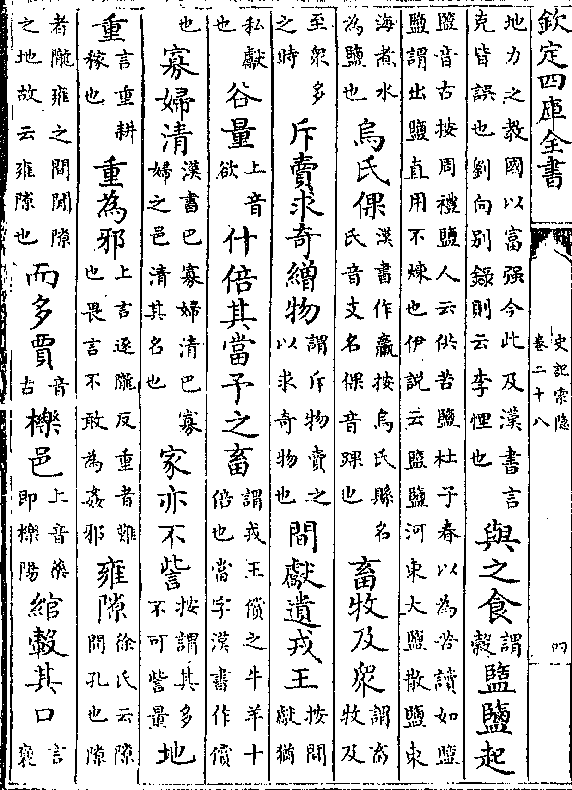 欽定四庫全書
史記索隱
卷二十八
四
地力之教國以富强今此及漢書言
克皆誤也劉向别錄則云李悝也
與之食
謂
穀
盬鹽起
盬音古按周禮鹽人云供苦鹽杜子春以為苦讀如盬
盬謂出鹽直用不煉也伊說云盬鹽河東大鹽散鹽東
海煮水
為鹽也
烏氏倮
漢書作臝按烏氏縣名
氏音支名倮音踝也
畜牧及眾
謂畜
牧及
至眾多
之時
斥賣求奇繒物
謂斥物賣之
以求奇物也
間獻遺戎王
按間
獻猶
私獻
也
谷量
上音
欲
什倍其當予之畜
謂戎王償之牛羊十
倍也當字漢書作償
也
寡婦清
漢書巴寡婦清巴寡
婦之邑清其名也
家亦不訾
按謂其多
不可訾量
地
重
言重耕
稼也
重為邪
上言逐隴反重者難
也畏言不敢為姦邪
雍隙
徐氏云隙
間孔也隙
者隴雍之間閒隙
之地故云雍隙也
而多賈
音
古
櫟邑
上音藥
即櫟陽
綰轂其口
言
褒